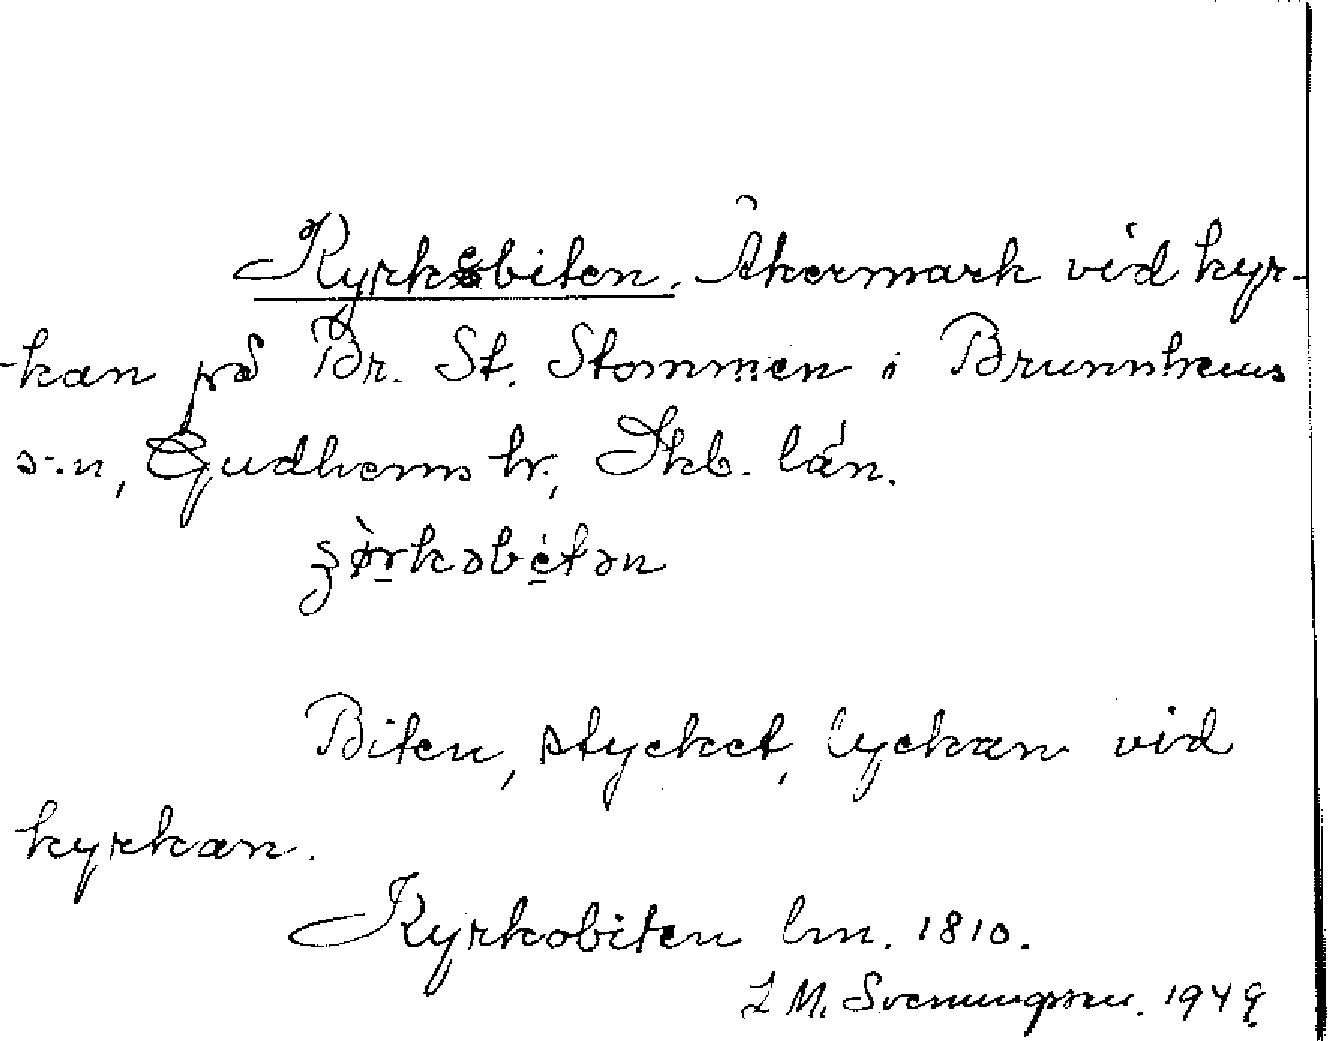 Kyrkebiten. Åkermark vid kyr-
kan på Br. St. Stommen i Brunnhems
s-n, Gudhems hr, Skb. län.
Biten, stycket, lyckan vid
kyrkan.
Kyrkobiten lm. 1810.
L M. Svenungsson. 1949.